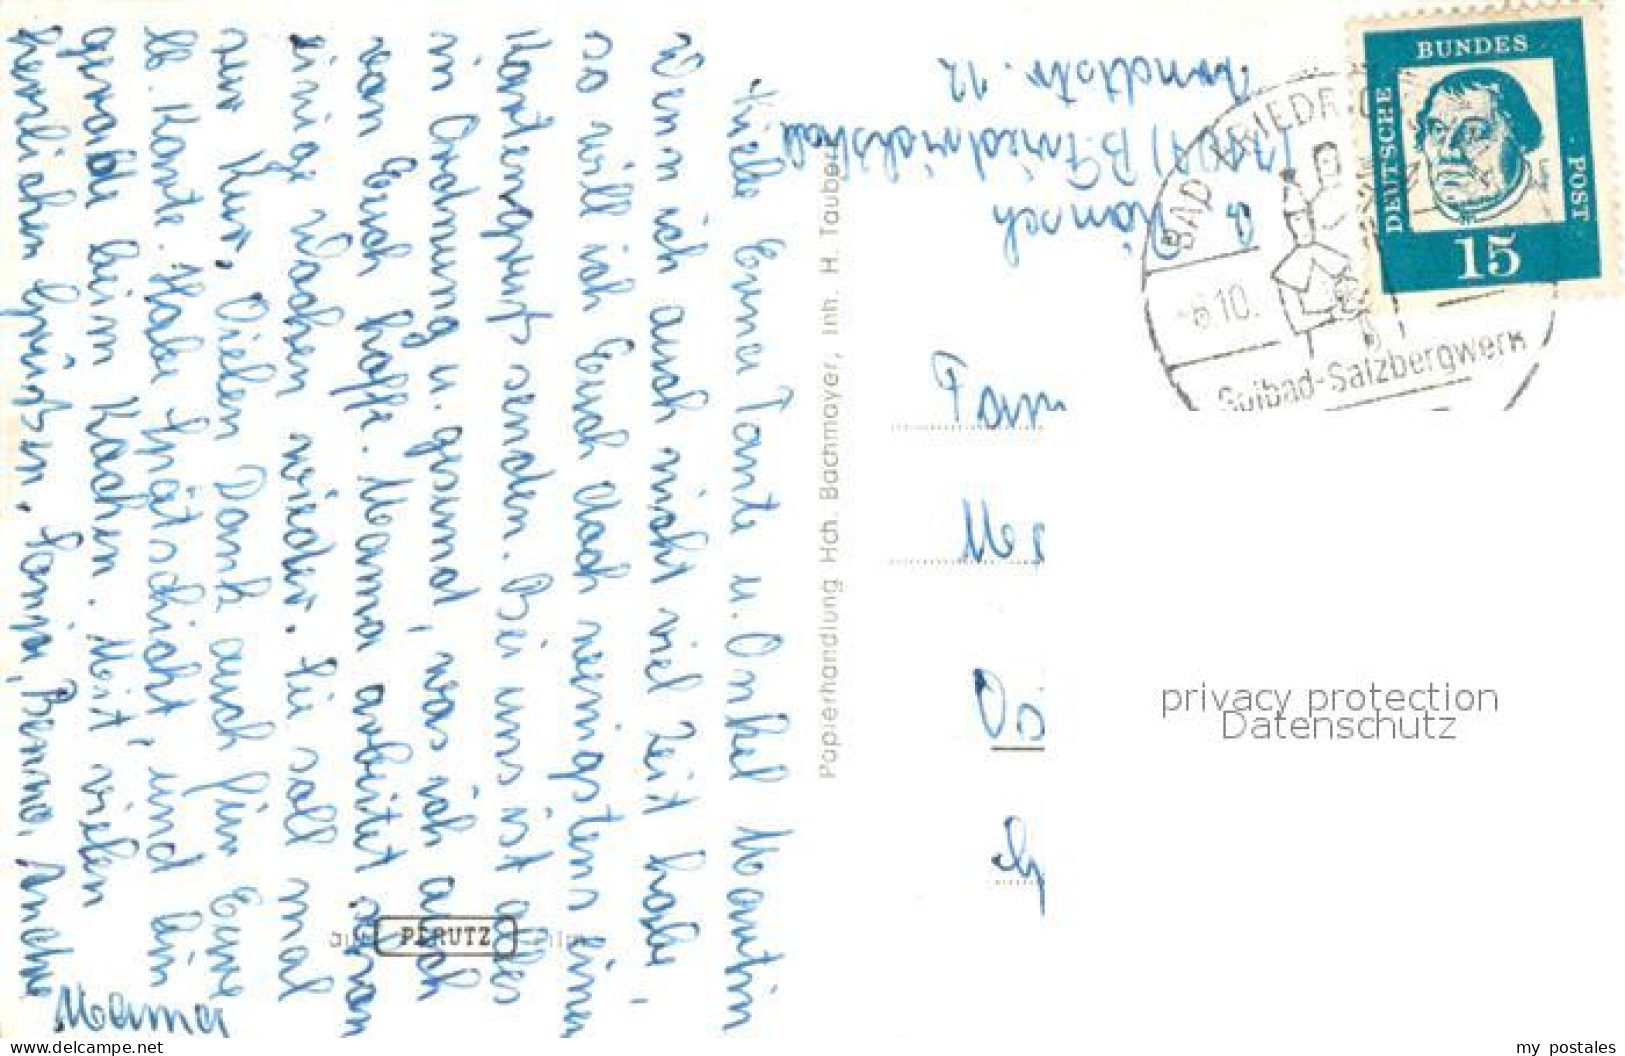 Liebe Erna Tante u. Onkel Martin
Wenn ich auch nicht viel Zeit habe,
so will ich Euch doch wenigstens einen
Kartengruß senden. Bei uns ist alles
in Ordnung u. gesund, was ich auch
von Euch hoffe. Mama arbeitet schon
einige Wochen wieder. Sie soll mal
zur Kur. Vielen Dank auch für Eure
lb. Karte. Habe Spätschicht, und bin
gerade beim Kochen. Mit vielen
herzlichen Grüßen. Sonja, Benno,
Mama
Papierhandlung Hch. Bachmayer, Inh. H. Tauber
auf PERUTZ Film
B. Friedrichshall
Arndtstr. 12
DEUTSCHE BUNDES POST
15
BAD FRIEDRICH
-6.10.
Solbad-Salzbergwerk
Fam
privacy protection
Datenschutz
www.delcampe.net
my_postales